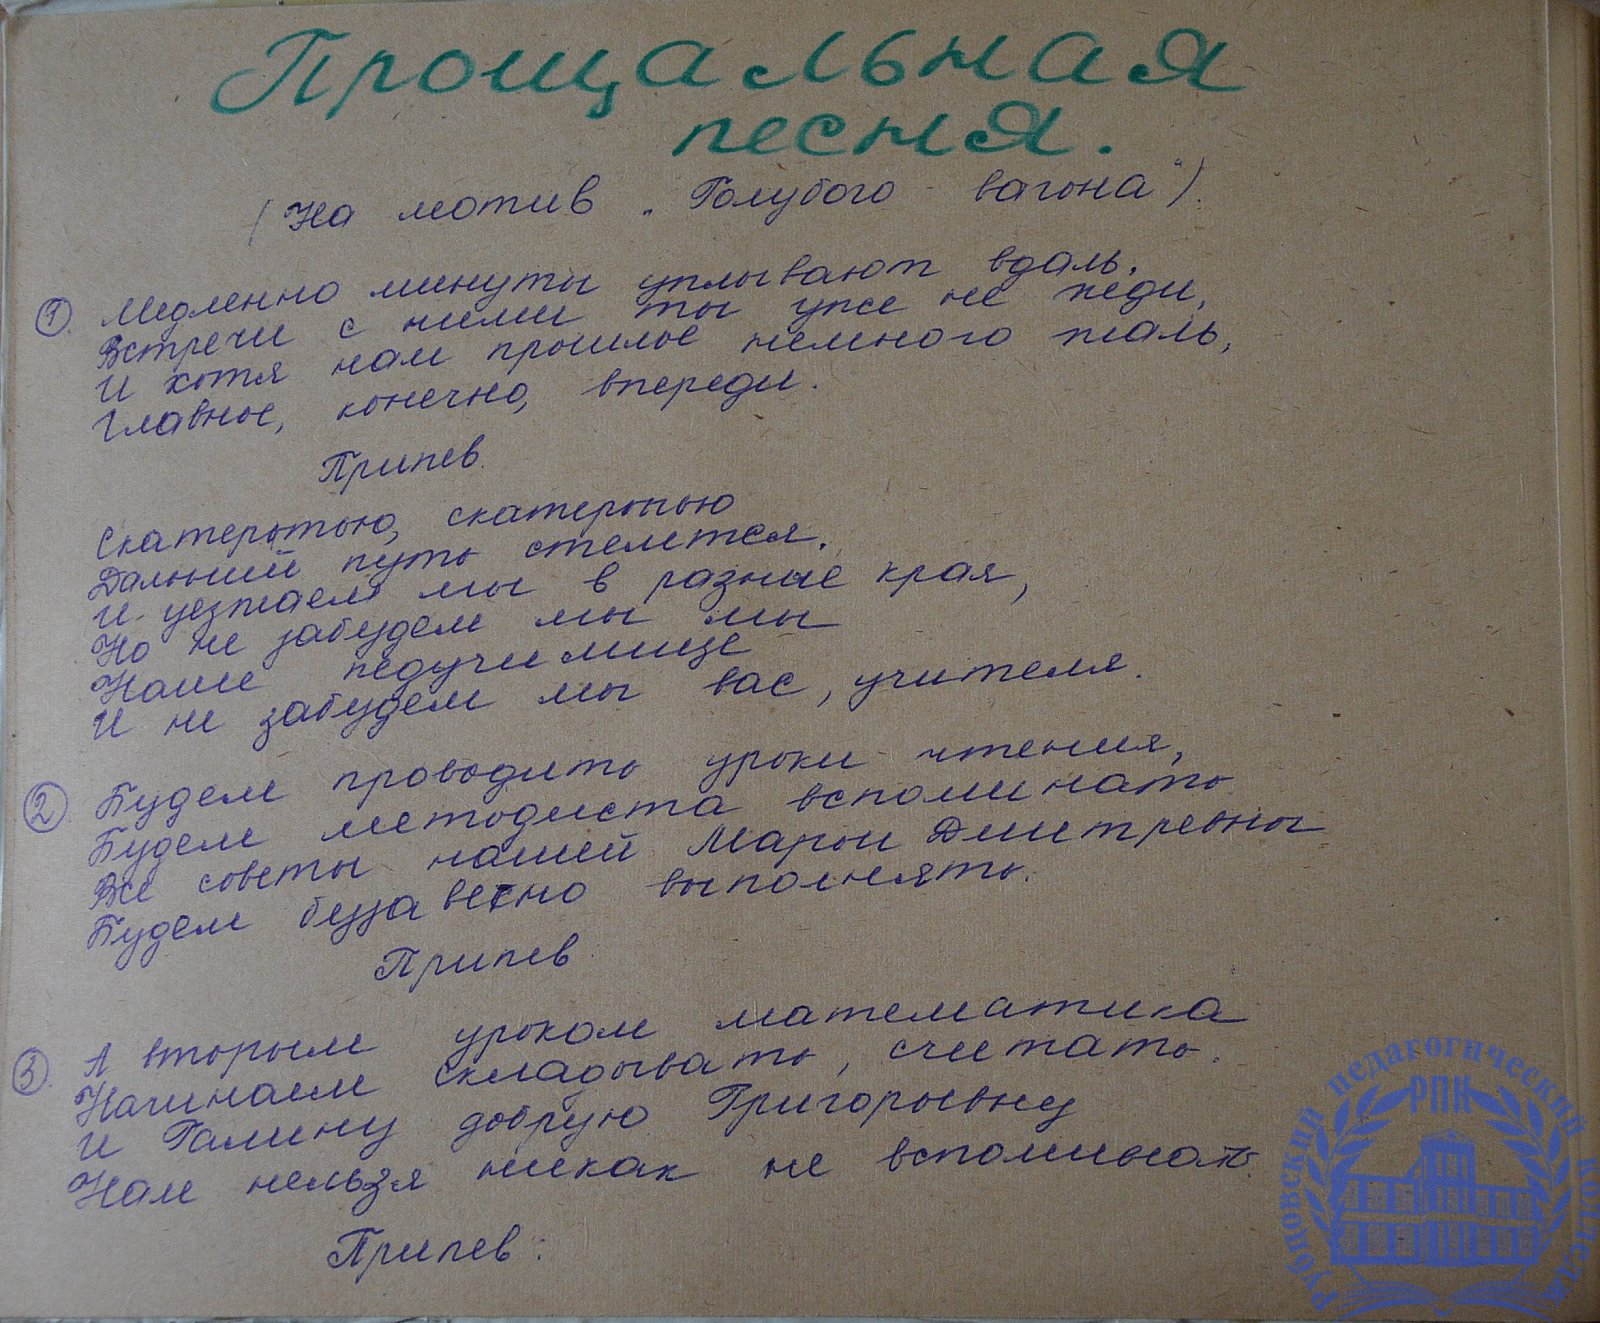 Прощальная
песня.
(На мотив „Голубого вагона").
① Медленно минуты уплывают вдаль,
Встречи с ними ты уже не жди,
И хотя нам прошлое немного жаль,
Главное, конечно, впереди.
Припев.
Скатертью, скатертью
Дальний путь стелится.
И уезжаем мы в разные края,
Но не забудем мы мы
Наше педучилище
И не забудем мы вас, учителя.
② Будем проводить уроки чтения,
Будем методиста вспоминать.
Все советы нашей Марьи Дмитревны
Будем беззаветно выполнять.
Припев.
③ А вторым уроком математика
Начинаем складывать, считать.
И Галину добрую Григорьевну
Нам нельзя никак не вспоминать.
Припев:
Рубцовский педагогический колледж
РПК